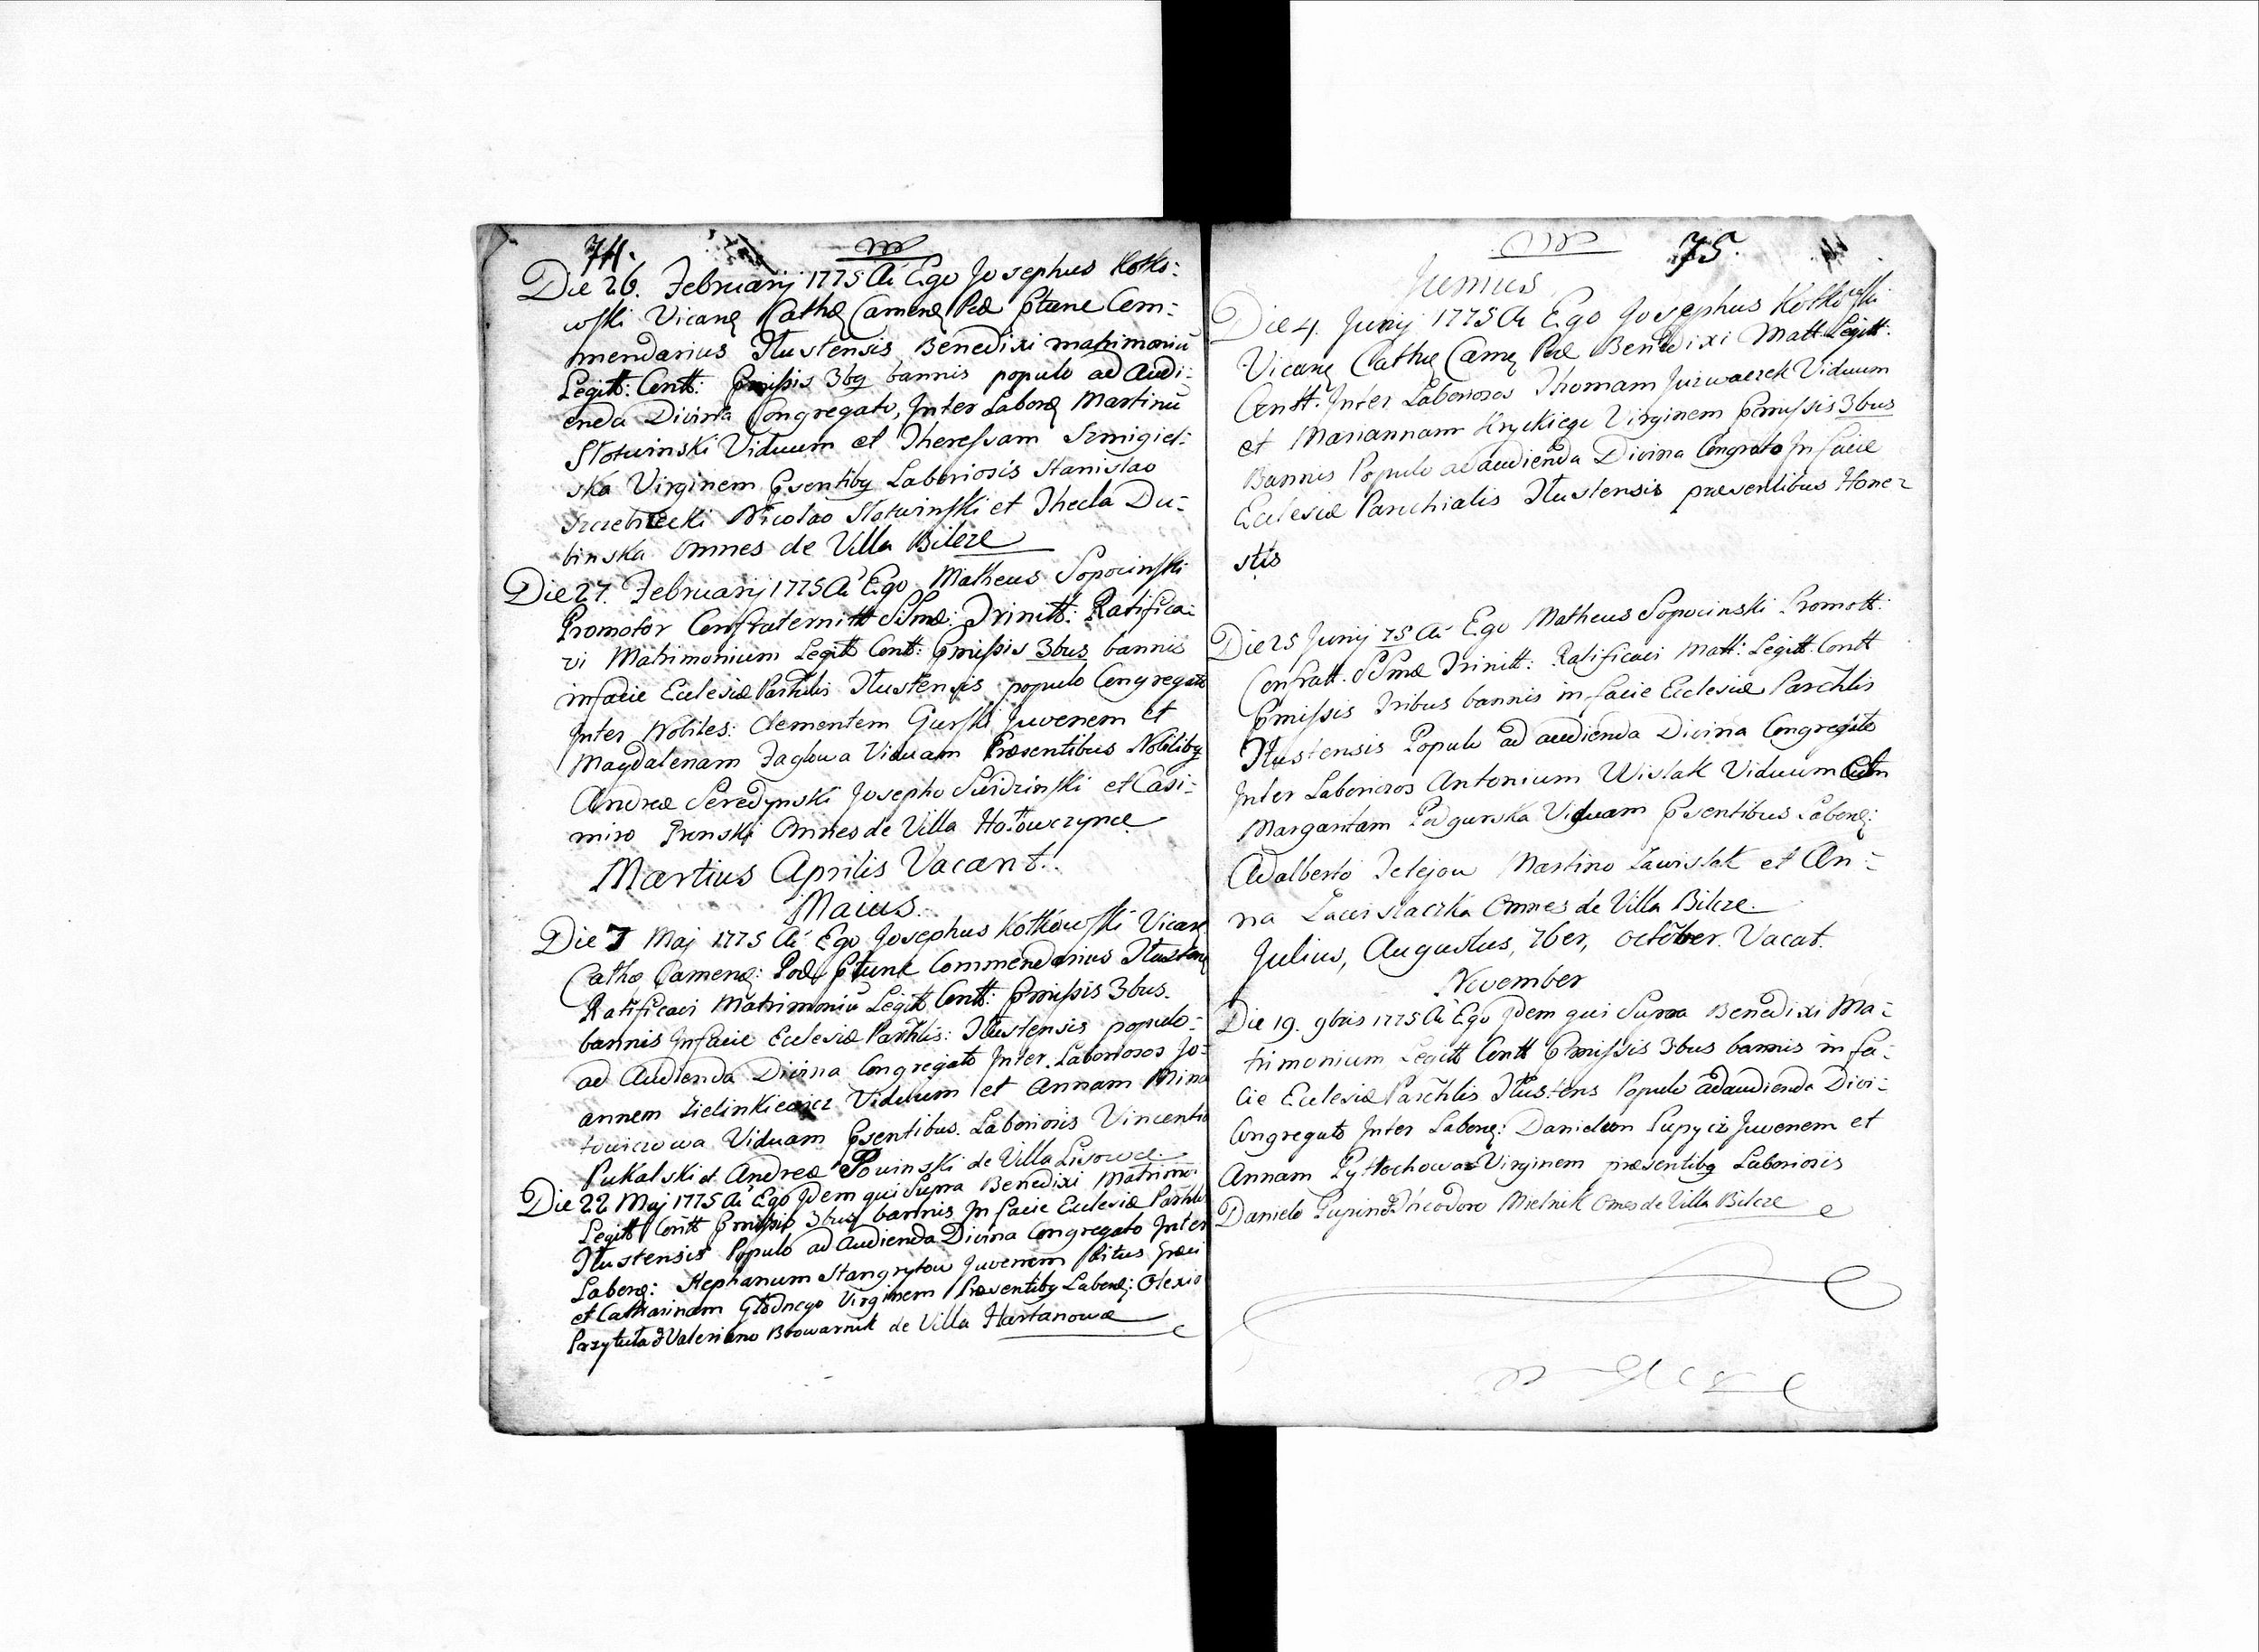 74.
Die 26. Februarij 1775 Ai Ego Josephus Kotko:
wski Vicarꝫ Cathꝫ Camenꝫ Pod ptunc Com:
mendarius Tłustensis Benedixi matrimoniū
Legitt: Contt: pmissis 3bꝫ bannis populo ad audi:
enda Divina Congregato, Inter Laborꝫ Martinū
Słotwinski Viduum et Theressam Szmigiel:
ska Virginem psentibꝫ Laboriosis Stanislao
Nicolao Słotwinski et Thecla Du:
binska Omnes de Villa Bilcze
Die 27. Februarij 1775 Ai Ego Matheus Sopocinski
Promotor Confraternitt SSmæ: Trinitt: Ratifica:
vi Matrimonium Legitt Contt: pmissis 3bus bannis
in facie Ecclesiæ Parchlis Tłustensis populo Congregato
Inter Nobiles: Clementem Gurski Juvenem et
Magdalenam Faglowa Viduam Præsentibus Nobilibꝫ
Andreæ Seredynski Josepho et Casi:
miro Omnes de Villa Hołowczynce
Martius Aprilis Vacant.
Maius.
Die 7 Maj 1775 Ai Ego Josephus Kotkowski Vicarꝫ
Cathꝫ Camenꝫ: Pod ptunc Commendarius Tłustenꝫ
Ratificavi Matrimoniū Legitt Contt: pmissis 3bus.
bannis In facie Ecclesiæ Parchlis: Tłustensis populo:
ad Audienda Divina Congregato Inter Laboriosos Jo:
annem Zielinkiewicz Viduum et Annam Mina
towiczowa Viduam psentibus. Laboriosis Vincentio
Pukalski et Andrea Sowinski de Villa Lisowce
Die 22 Maj 1775 Ai Ego Idem qui Supra Benedixi Matrimo:
Legitt Contt pmissis 3bus bannis In facie Ecclesiæ Parchlis
Tłustensis Populo ad Audienda Divina Congregato Inter
Laborꝫ: Stephanum Stangrytow Juvenem Ritus Græci
et Catharinam Głodnego Virginem Præsentibꝫ Laborꝫ: Olexio
Przytuła & Valeriano Browarnik de Villa Hartanowce
75.
Junius
Die 4. Junij 1775 Ai Ego Josephus Kotkowski
Vicarꝫ Cathꝫ Camꝫ Pod Benedixi Matt Legitt:
Contt. Inter Laboriosos Thomam Jurwaczek Viduum
et Mariannam Kryckiego Virginem pmissis 3bus
Bannis Populo ad audienda Divina Congrato In facie
Ecclesiæ Parichialis Tłustensis præsentibus Hone:
stis
Die 25 Junij 75 Ai Ego Matheus Sopocinski Promott:
Confratt. SSmæ Trinitt: Ratificavi Matt: Legitt: Contt
pmissis Tribus bannis in facie Ecclesiæ Parchlis
Tłustensis Populo ad audienda Divina Congregato
Inter Laboriosos Antonium Wislak Viduum Cum
Margaritam Podgurska Viduam psentibus Laborꝫ:
Adalberto Telejow Martino Zawislak et An:
na Zawislaczka Omnes de Villa Bilcze.
Julius, Augustus, 7ber, October. Vacat.
November
Die 19. 9bris 1775 Ai Ego Idem qui Supra Benedixi Ma:
trimonium Legitt Contt pmissis 3bus bannis in fa:
cie Ecclesiæ Parchlis Tłustens Populo ad audienda Divi:
Congregato Inter Laborꝫ: Danielem Supycz Juvenem et
Annam Pyttochowa Virginem præsentibꝫ Laboriosis
Daniele Theodoro Mielnik Omes de Villa Bilcze